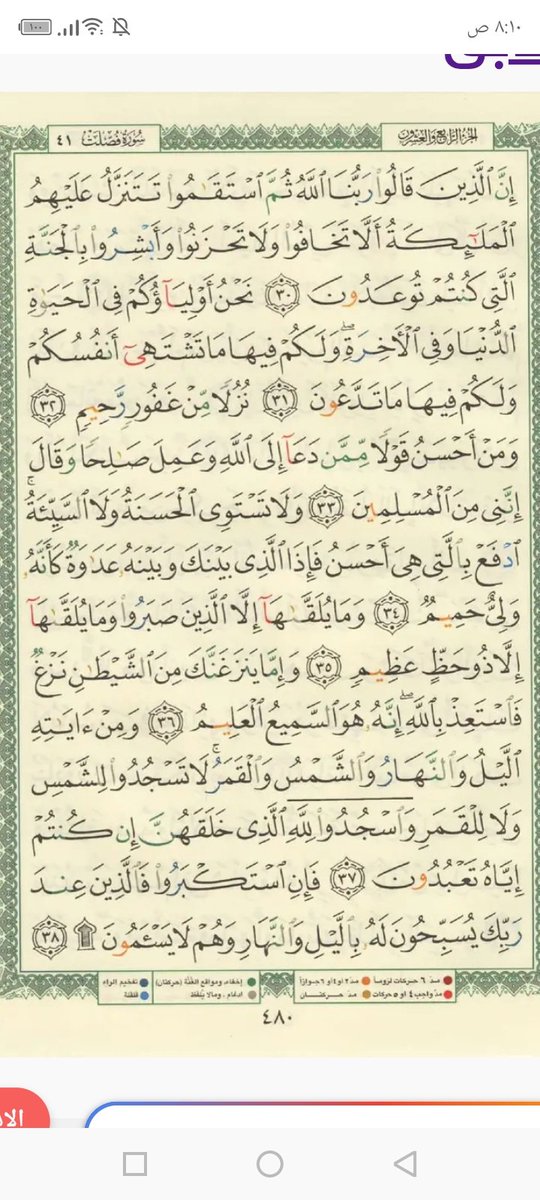 ٨:١٠ ص
١٠٠
سُورَةُ فُصِّلَتْ ٤١
الجزء الرابع والعشرون
إِنَّ ٱلَّذِينَ قَالُوا۟ رَبُّنَا ٱللَّهُ ثُمَّ ٱسْتَقَـٰمُوا۟ تَتَنَزَّلُ عَلَيْهِمُ
ٱلْمَلَـٰٓئِكَةُ أَلَّا تَخَافُوا۟ وَلَا تَحْزَنُوا۟ وَأَبْشِرُوا۟ بِٱلْجَنَّةِ
ٱلَّتِى كُنتُمْ تُوعَدُونَ ٣٠ نَحْنُ أَوْلِيَآؤُكُمْ فِى ٱلْحَيَوٰةِ
ٱلدُّنْيَا وَفِى ٱلْـَٔاخِرَةِ ۖ وَلَكُمْ فِيهَا مَا تَشْتَهِىٓ أَنفُسُكُمْ
وَلَكُمْ فِيهَا مَا تَدَّعُونَ ٣١ نُزُلًا مِّنْ غَفُورٍ رَّحِيمٍ ٣٢
وَمَنْ أَحْسَنُ قَوْلًا مِّمَّن دَعَآ إِلَى ٱللَّهِ وَعَمِلَ صَـٰلِحًا وَقَالَ
إِنَّنِى مِنَ ٱلْمُسْلِمِينَ ٣٣ وَلَا تَسْتَوِى ٱلْحَسَنَةُ وَلَا ٱلسَّيِّئَةُ ۚ
ٱدْفَعْ بِٱلَّتِى هِىَ أَحْسَنُ فَإِذَا ٱلَّذِى بَيْنَكَ وَبَيْنَهُۥ عَدَٰوَةٌ كَأَنَّهُۥ
وَلِىٌّ حَمِيمٌ ٣٤ وَمَا يُلَقَّىٰهَآ إِلَّا ٱلَّذِينَ صَبَرُوا۟ وَمَا يُلَقَّىٰهَآ
إِلَّا ذُو حَظٍّ عَظِيمٍ ٣٥ وَإِمَّا يَنزَغَنَّكَ مِنَ ٱلشَّيْطَـٰنِ نَزْغٌ
فَٱسْتَعِذْ بِٱللَّهِ ۖ إِنَّهُۥ هُوَ ٱلسَّمِيعُ ٱلْعَلِيمُ ٣٦ وَمِنْ ءَايَـٰتِهِ
ٱلَّيْلُ وَٱلنَّهَارُ وَٱلشَّمْسُ وَٱلْقَمَرُ ۚ لَا تَسْجُدُوا۟ لِلشَّمْسِ
وَلَا لِلْقَمَرِ وَٱسْجُدُوا۟ لِلَّهِ ٱلَّذِى خَلَقَهُنَّ إِن كُنتُمْ
إِيَّاهُ تَعْبُدُونَ ٣٧ فَإِنِ ٱسْتَكْبَرُوا۟ فَٱلَّذِينَ عِندَ
رَبِّكَ يُسَبِّحُونَ لَهُۥ بِٱلَّيْلِ وَٱلنَّهَارِ وَهُمْ لَا يَسْـَٔمُونَ ۩ ٣٨
مد ٦ حركات لزوما مد ٢ او ٤ او ٦ جوازا إخفاء ومواقع الغنة (حركتان) تفخيم الراء
مد واجب ٤ او ٥ حركات مد حركتان ادغام ، ومالا يلفظ قلقلة
٤٨٠